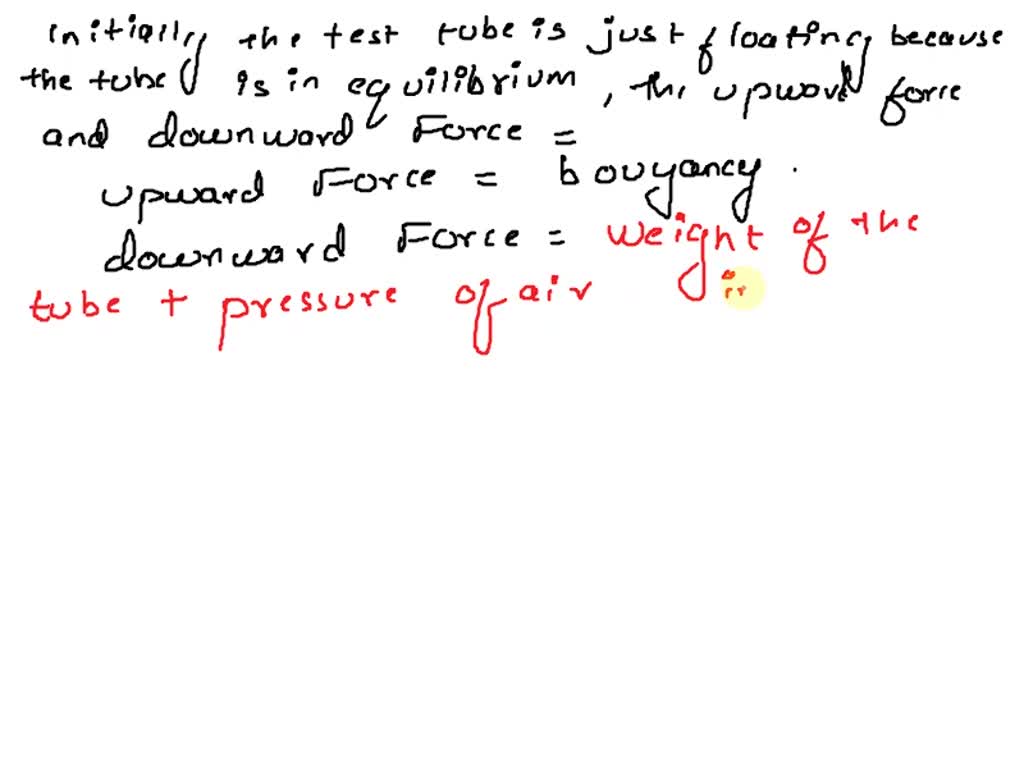 initially the test tube is just floating, because
the tube is in equilibrium, the upword force
and downward Force =
upward Force = bouyancy.
downward Force = weight of the
tube + pressure of air